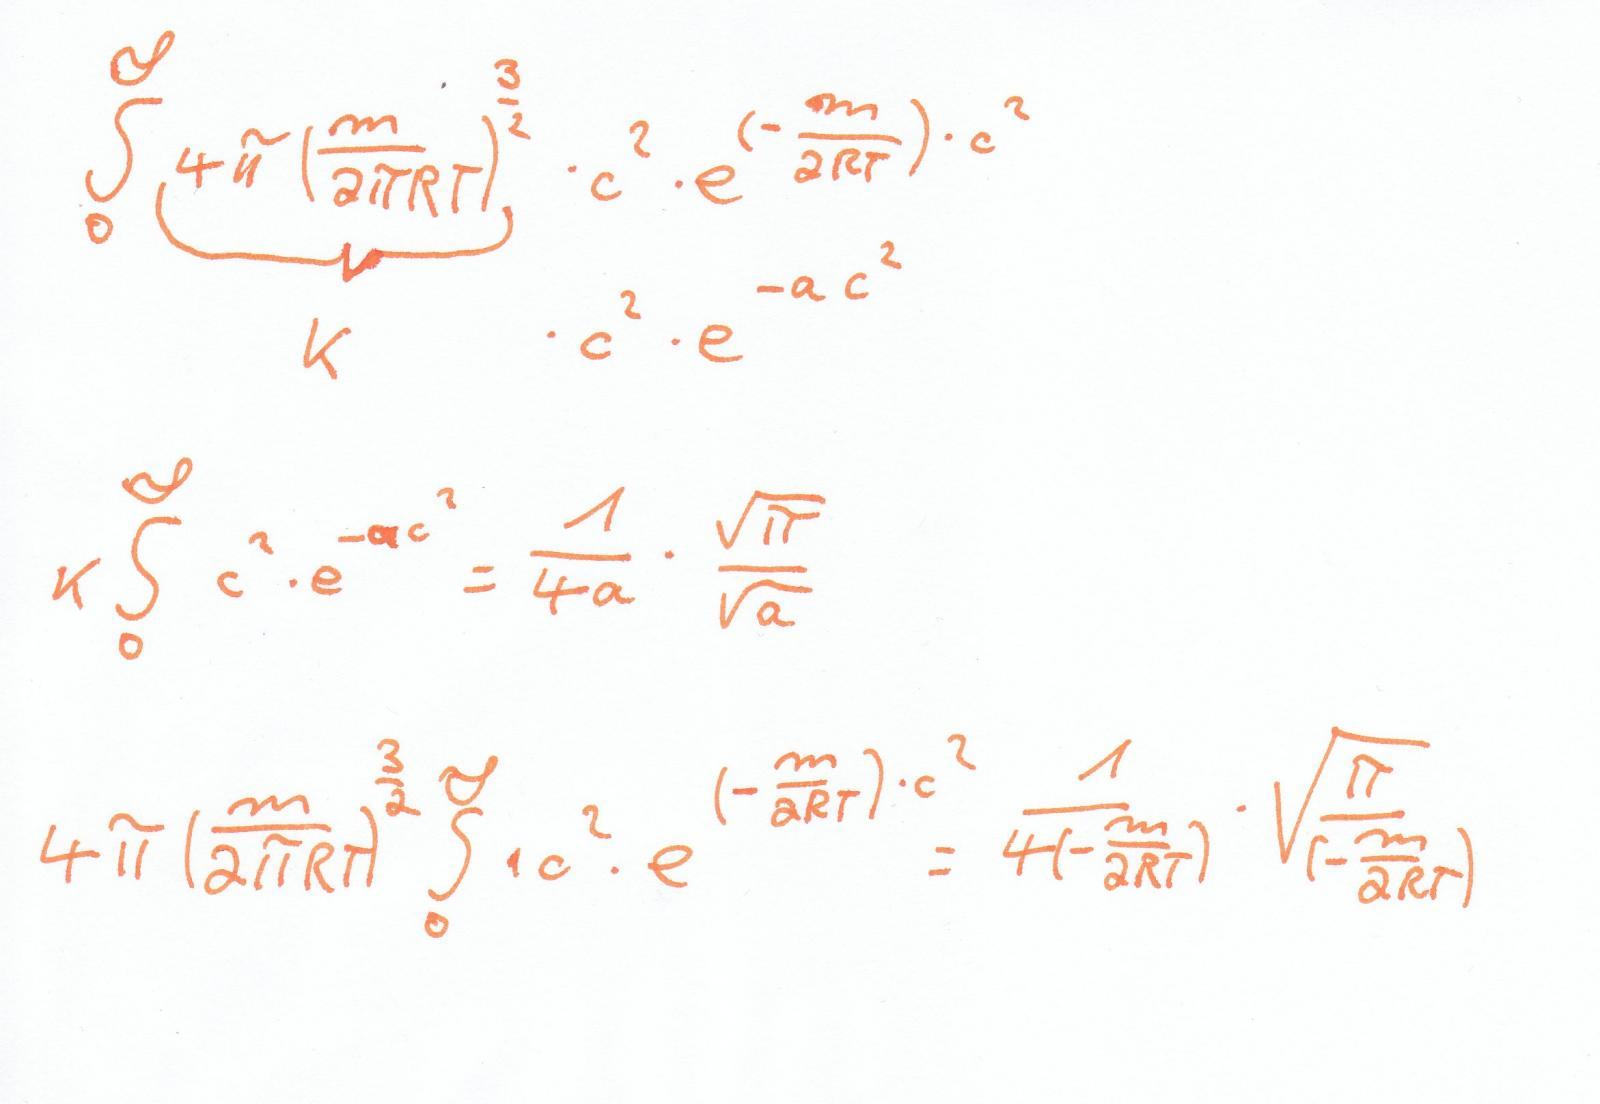 ∫₀^∞ 4π (m/(2πRT))^(3/2) · c² · e^((-m/(2RT)) · c²)
K · c² · e^(-ac²)
K ∫₀^∞ c² · e^(-ac²) = 1/(4a) · √π/√a
4π (m/(2πRT))^(3/2) ∫₀^∞ · c² · e^((-m/(2RT)) · c²) = 1/(4(-m/(2RT))) · √(π/(-m/(2RT)))